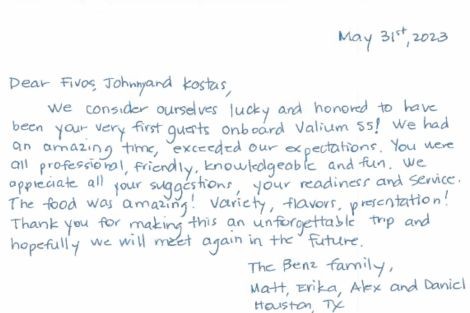 May 31st, 2023
Dear Fivos, Johnny and Kostas,
We consider ourselves lucky and honored to have
been your very first guests onboard Valium 55! We had
an amazing time, exceeded our expectations. You were
all professional, friendly, knowledgeable and fun. We
appreciate all your suggestions, your readiness and service.
The food was amazing! Variety, flavors, presentation!
Thank you for making this an unforgettable trip and
hopefully we will meet again in the future.
The Benz family,
Matt, Erika, Alex and Daniel
Houston, TX